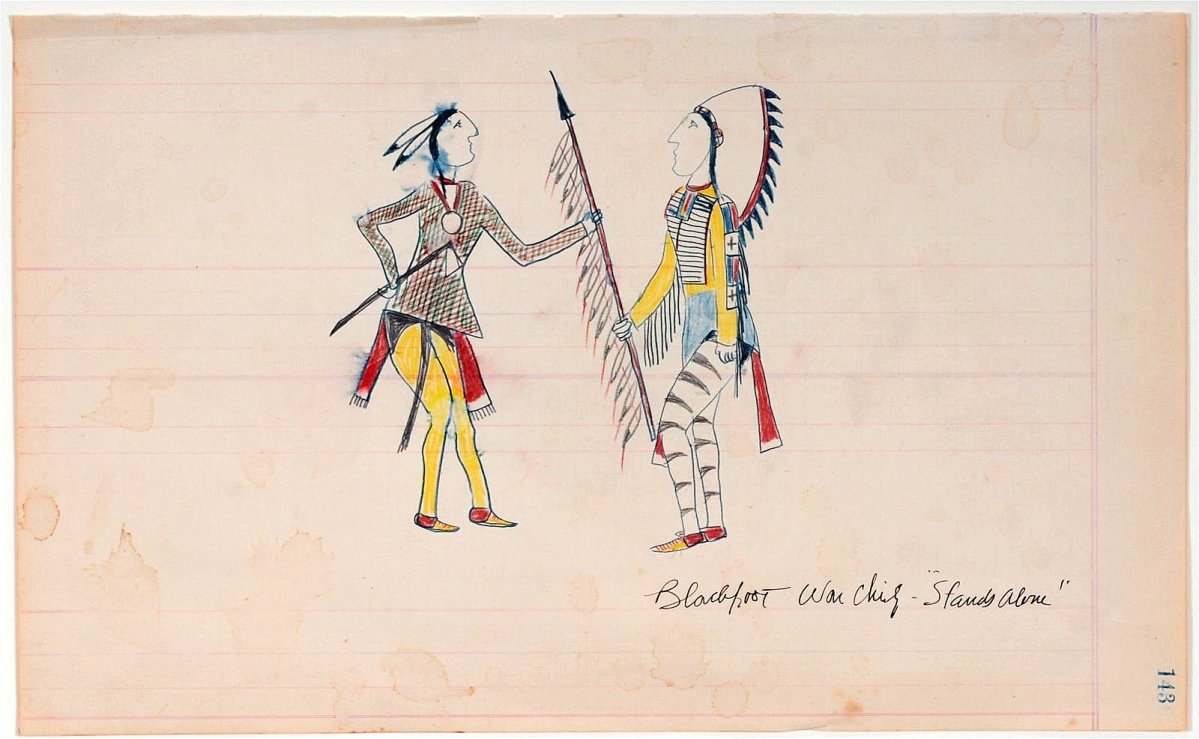 Blackfoot War Chief - "Stands alone"
143